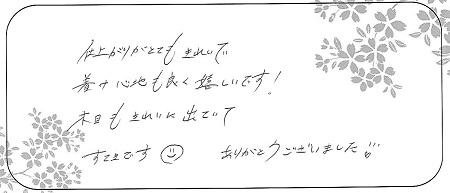 仕上がりがとても きれいで
着け心地も良く嬉しいです!
木目も きれいに 出ていて
すてきです ありがとうございました!!!